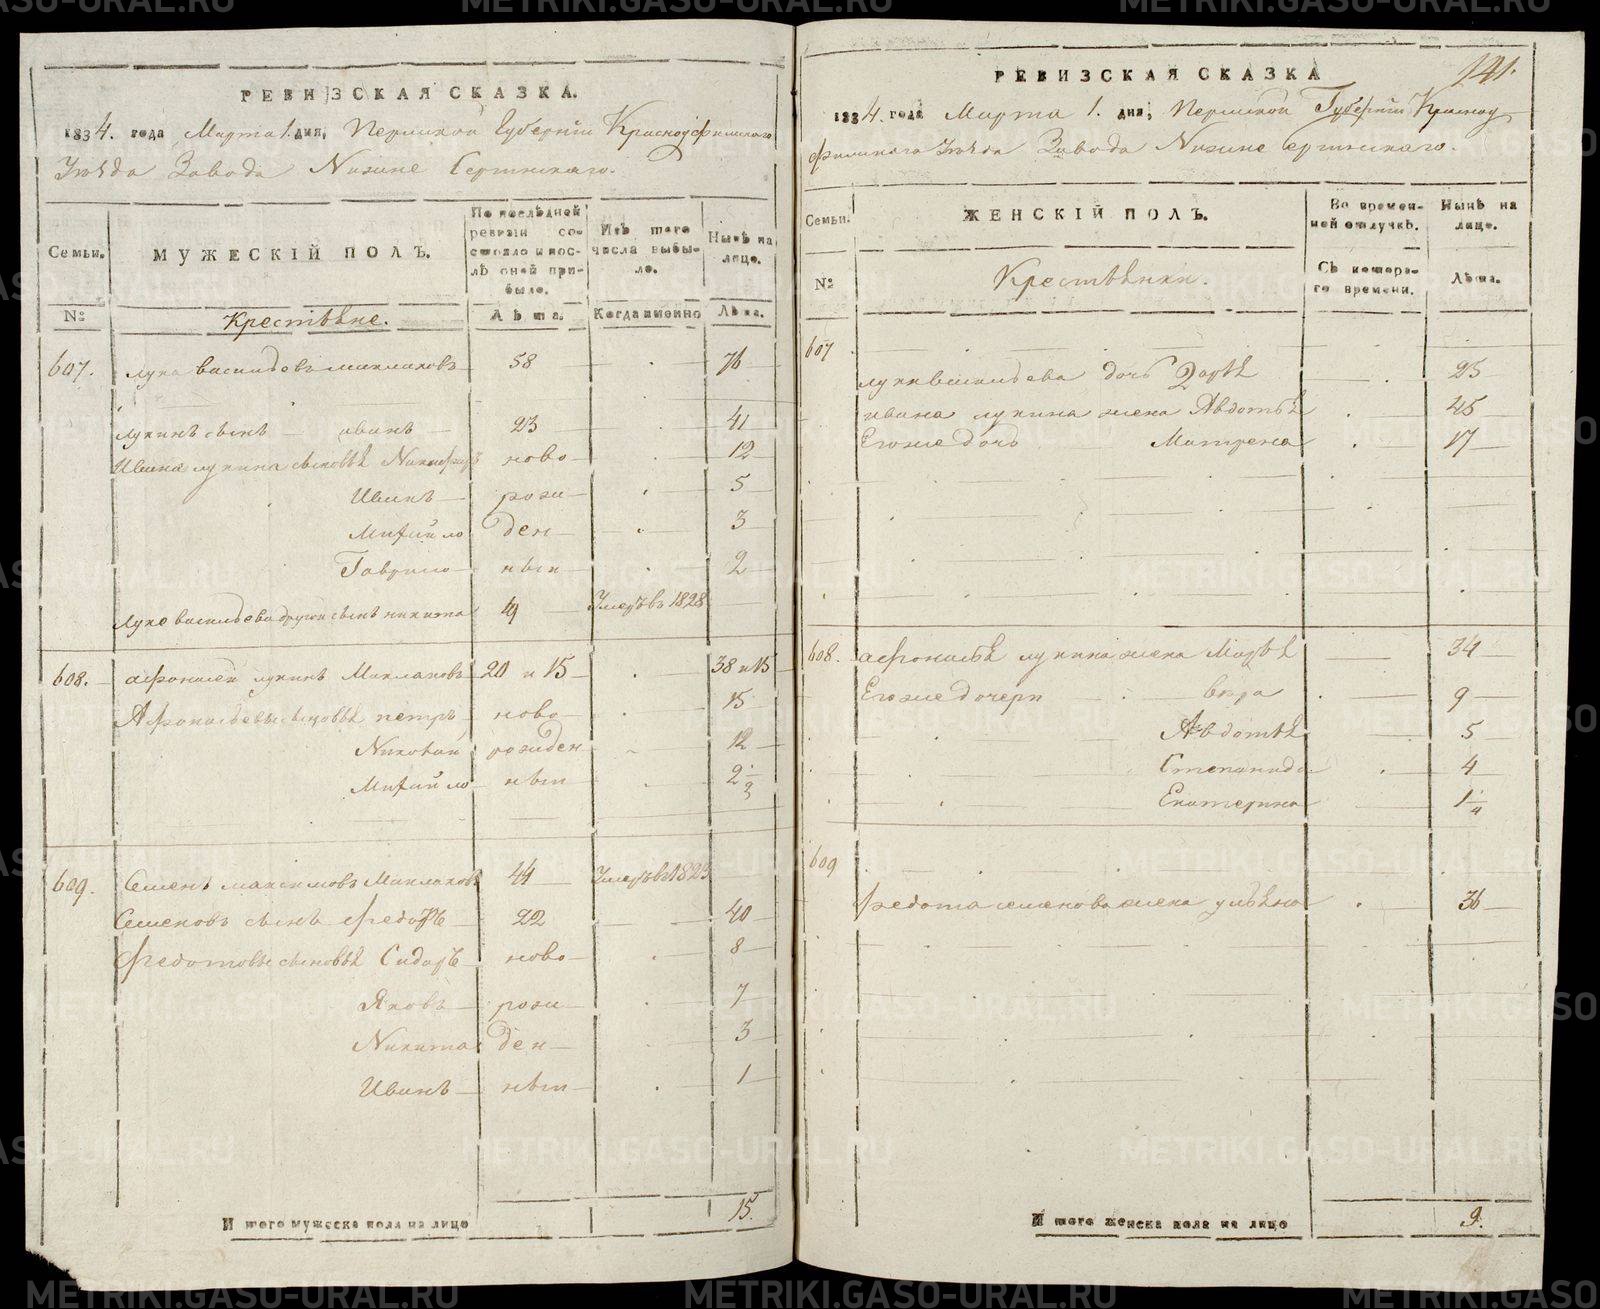 РЕВИЗСКАЯ СКАЗКА.
1834. года Марта 1. дня, Пермской Губернiи Красноуфимскаго
Уѣзда Завода Низине Сергинскаго.
Семьи.
МУЖЕСКІЙ ПОЛЪ.
По послѣдней ревизiи состояло и послѣ оной прибыло.
Изъ того числа выбыло.
Нынѣ на лице.
№
Крестьѣне.
Лѣта.
Когда именно
Лѣта.
607. Лука Васильевъ Маклаковъ 58 76
Лукинъ сынъ иванъ 23 41
Ивана лукина сыновьѣ Никифоръ ново 12
Иванъ рози 5
Михайло ден 3
Гаврило ныи 2
Луке васильева другой сынъ никита 19 Умеръ въ 1828
608. Афонасей лукинъ Маклаковъ 20 и 15 38 и 15
Афонасьевы сыновьѣ петръ ново 15
Николай розиден 12
Михайло ныи 2 1/2
609. Семенъ максимовъ Маклаковъ 44 Умеръ в 1823
Семеновъ сынъ Федотъ 22 40
Федотовы сыновьѣ Сидоръ ново 8
Яковъ рози 7
Никита ден 3
Иванъ ныи 1
И того мужеска пола на лицо 15.
РЕВИЗСКАЯ СКАЗКА
141.
1834. года Марта 1. дня, Пермской Губернiи Красноу
фимскаго Уѣзда Завода Низине Сергинскаго.
Семьи.
ЖЕНСКІЙ ПОЛЪ.
Во временной отлучкѣ.
Нынѣ на лице.
№
Крестьѣнки.
Съ котораго времени.
Лѣта.
607
луки васильева дочь Дарьѣ 25
ивана лукина жена Авдотьѣ 45
Егоже дочь Матрена 17
608. афонасьѣ лукина жена Марьѣ 34
Егоже дочери вѣра 9
Авдотьѣ 5
Степанида 4
Екатерина 1 1/4
609
Федота семенова жена ульѣна 36
И того женска пола на лицо 9.
METRIKI.GASO-URAL.RU